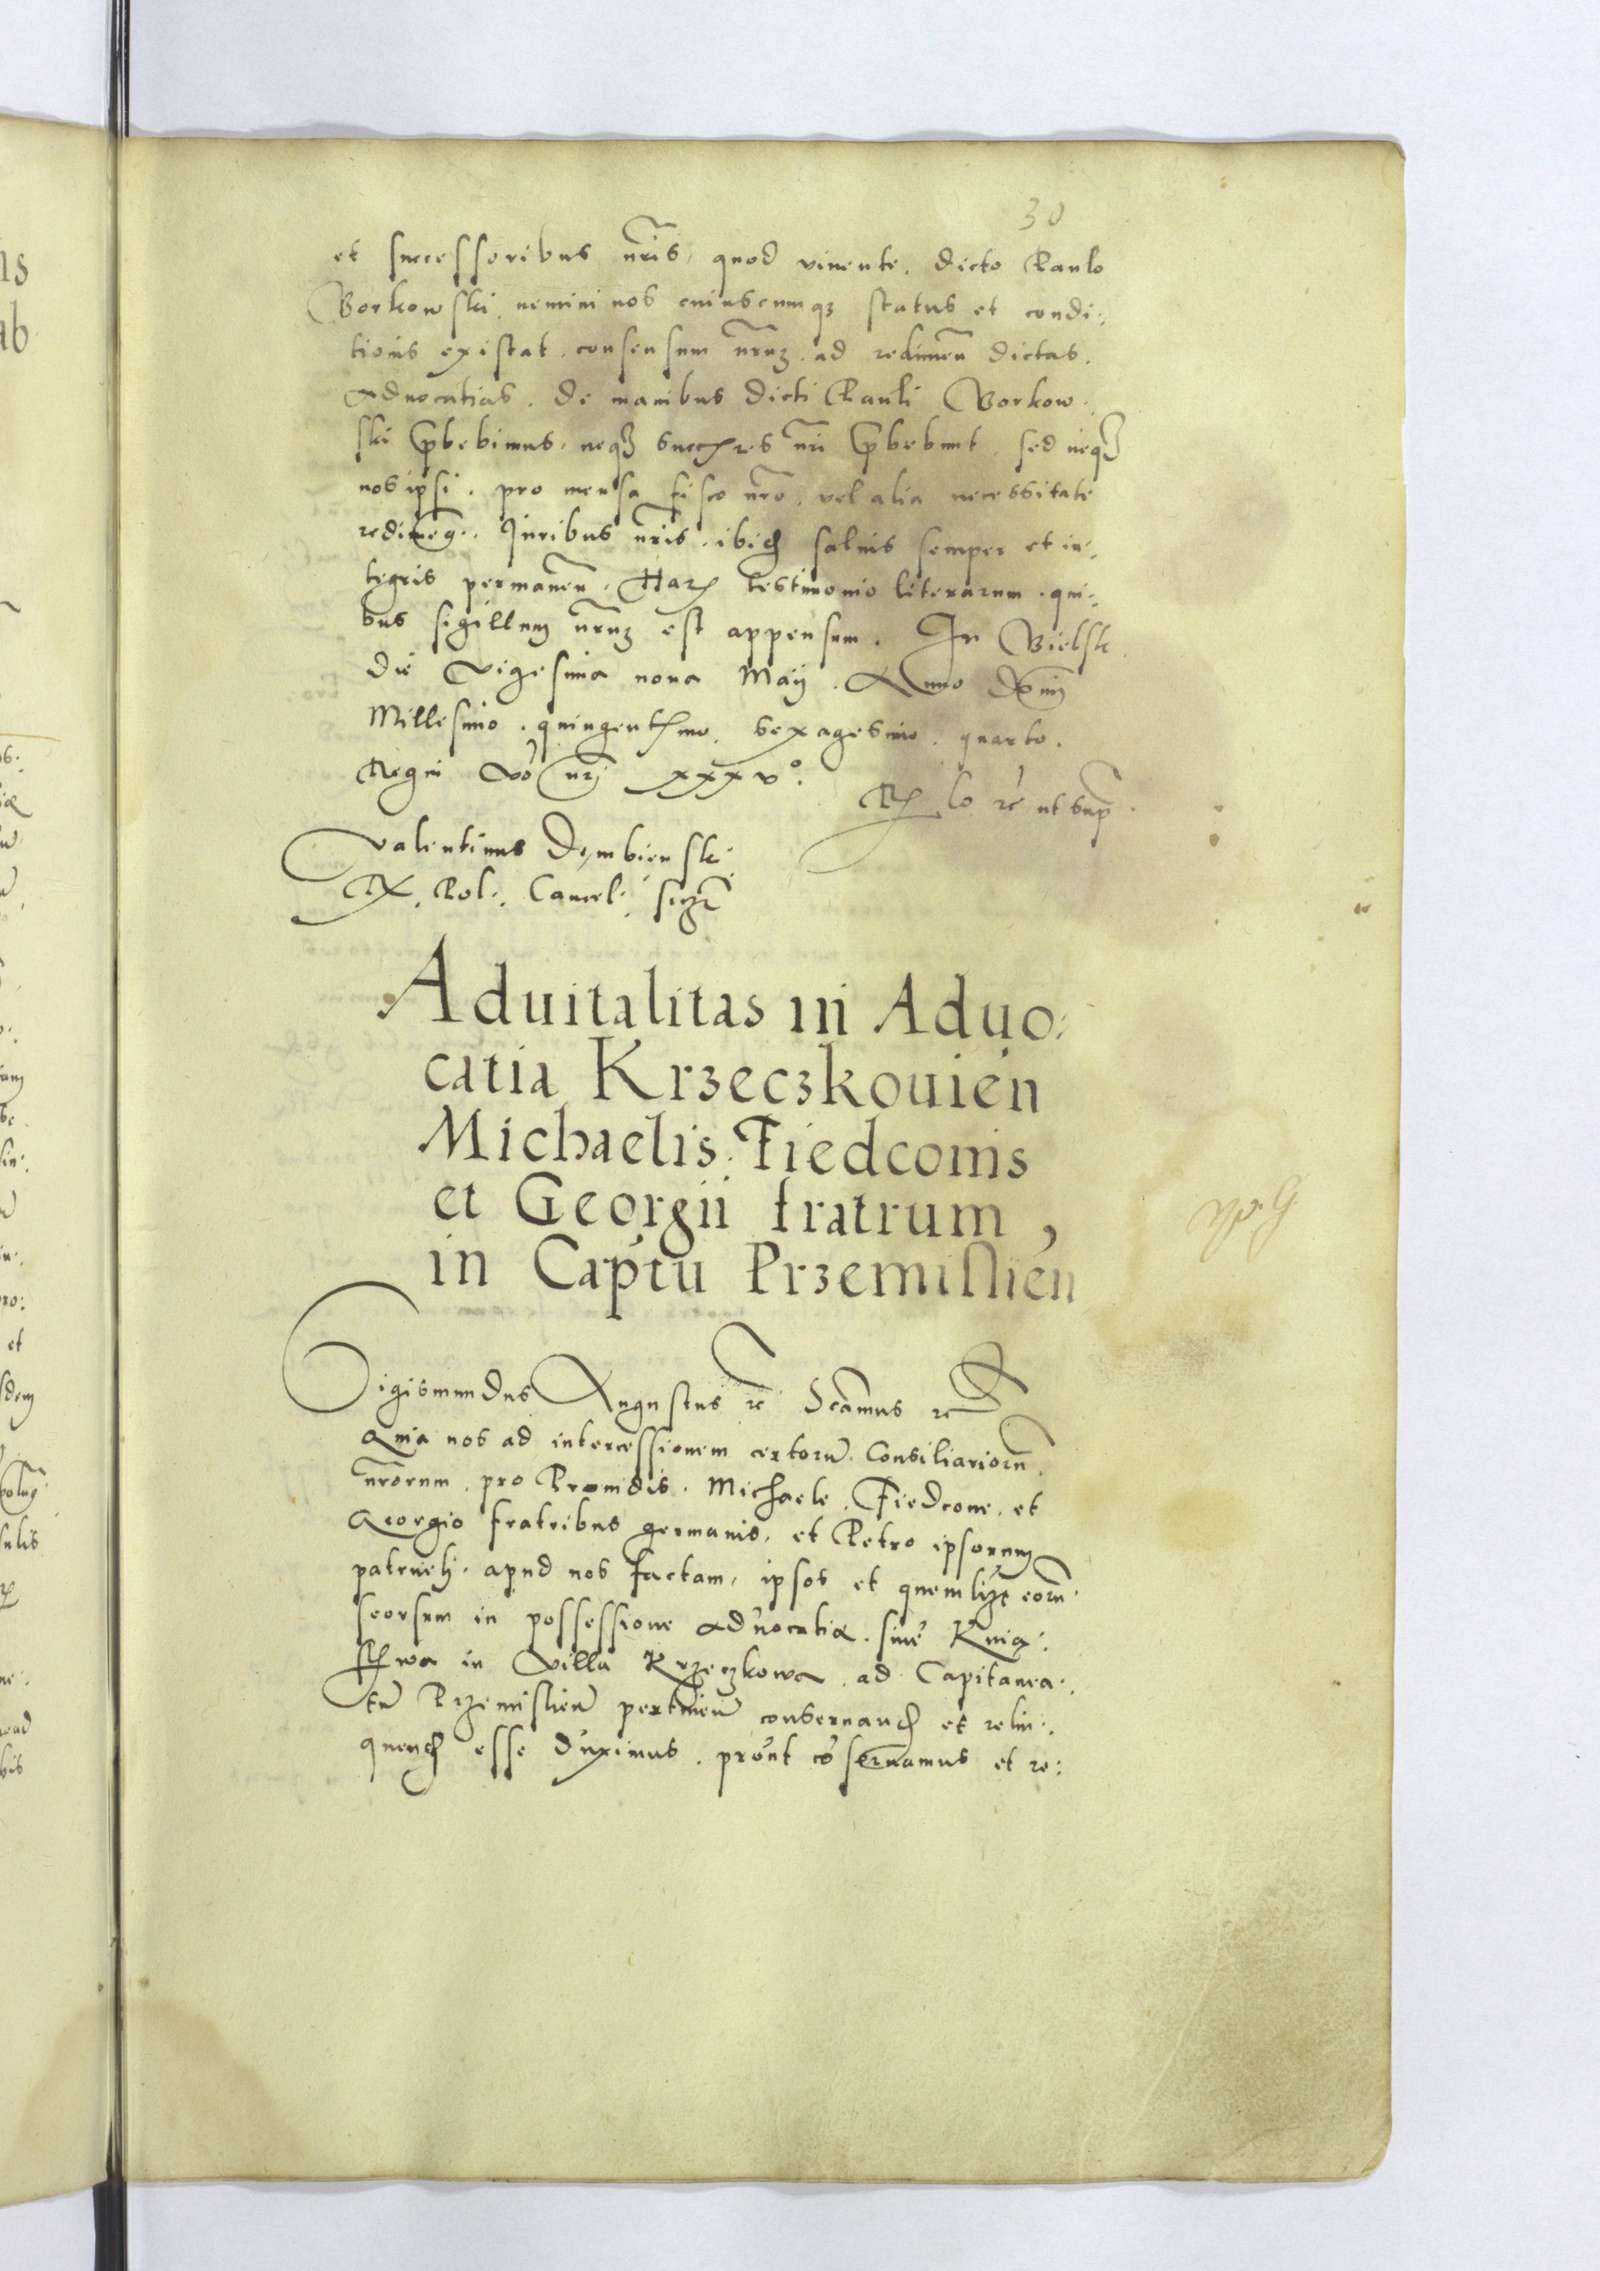 30
et successoribus nr̃is, quod vivente. dicto Paulo
Borkowski. nemini nos cuiuscumqꝫ status et condi:
tionis existat. consensum nr̃uꝫ. ad redimen̄ dictas.
Aduocatias. de manibus dicti Pauli Borkow.
ski p̃bebimus. neqꝫ succ̃res nr̃i p̃bebunt. sed neqꝫ
nos ipsi. pro mensa fisco nr̃o. vel alia necessitate
redimemꝰ. Iuribus nr̃is. ibid salvis semper et in:
tegris permanen̄. Har̃ testimonio literarum. qui:
bus sigillum nr̃uꝫ est appensum. In Bielsk.
die Vigesima nona Maij. Anno Dom̃
Millesimo. quingent̃mo. sexagesimo. quarto.
Regni vo nr̃i xxxvº.
R̃lo rẽ ut sup̃.
Valentinus Dembienski.
R. Pol. Cancel. sst̃
Aduitalitas in Aduo:
catia Krzeczkouien̄
Michaelis. Fiedconis
et Georgii fratrum,
in Cap̃tu Przemislien̄
Sigismundus Augustus rc̃ Sc̃amus rc̃
Quia nos ad intercessionem certorũ. Consiliariorũ.
nr̃orum. pro Providis. Michaele. Fiedcone. et
Georgio fratribus germanis. et Petro ipsorum
patrueli. apud nos factam, ipsos et quemlibꝫ eorũ.
seorsum in possessione Aduocatiæ. sive Knia:
st̃wa in Villa Krzeczkowa. ad Capitanea:
tũ Przemislien̄ pertinen̄ conservand̃ et relin:
quend̃ esse duximus. prout cõservamus et re: